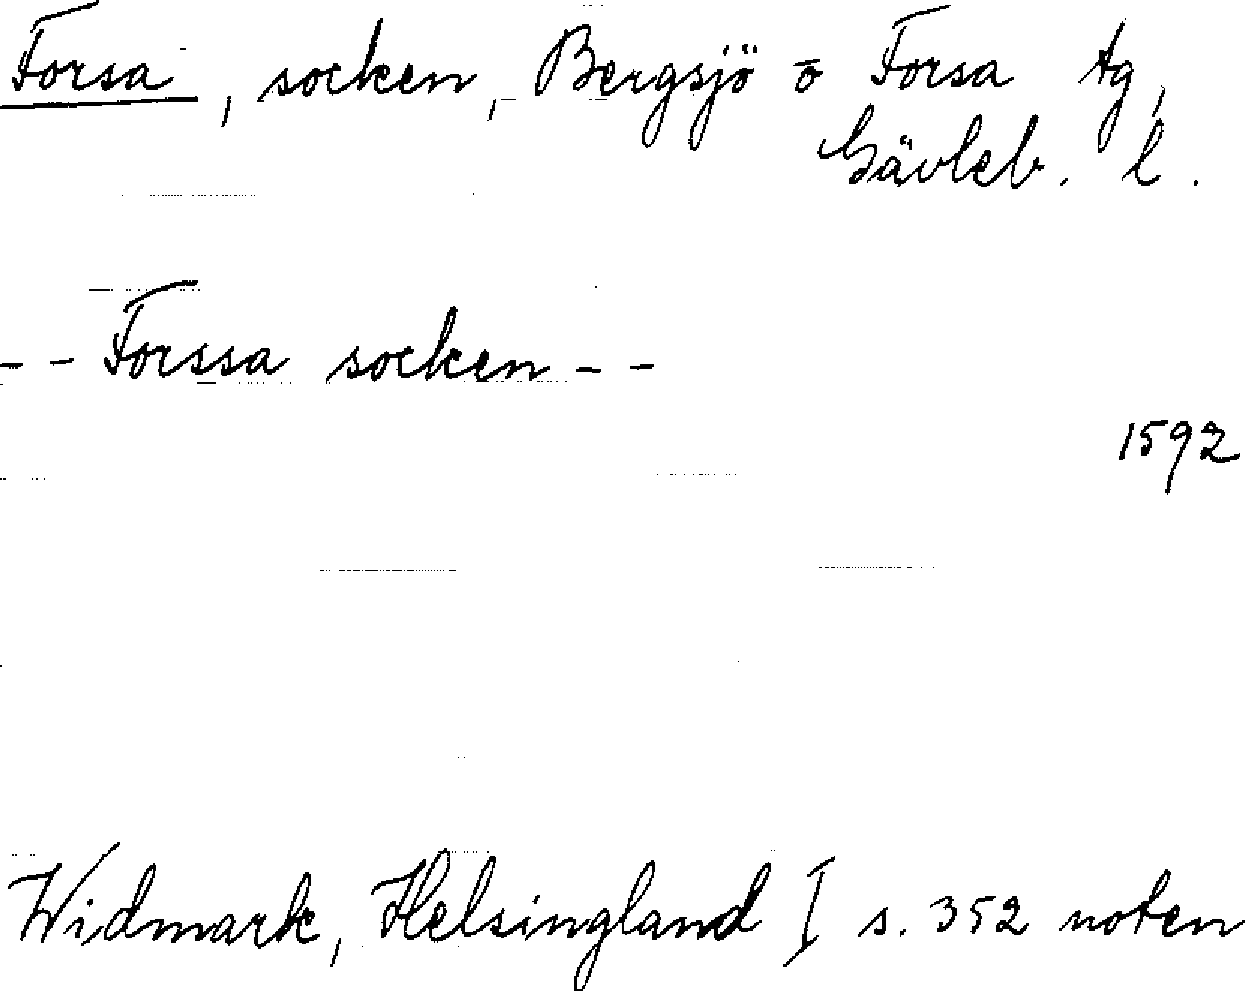 Forsa, socken, Bergsjö o Forsa tg,
Gävleb. l.
- - Forssa socken - -
1592
Widmark, Helsingland I s. 352 noten